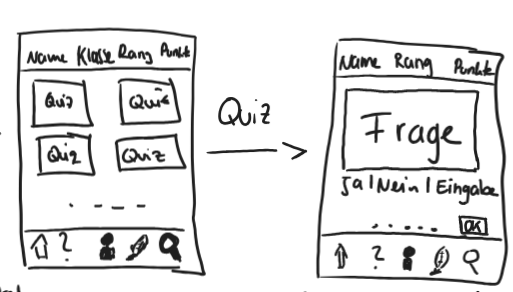 Name Klasse Rang Punkte
Quiz Quiz
Quiz Quiz
?
Quiz
Name Rang Punkte
Frage
Ja | Nein | Eingabe
OK
?